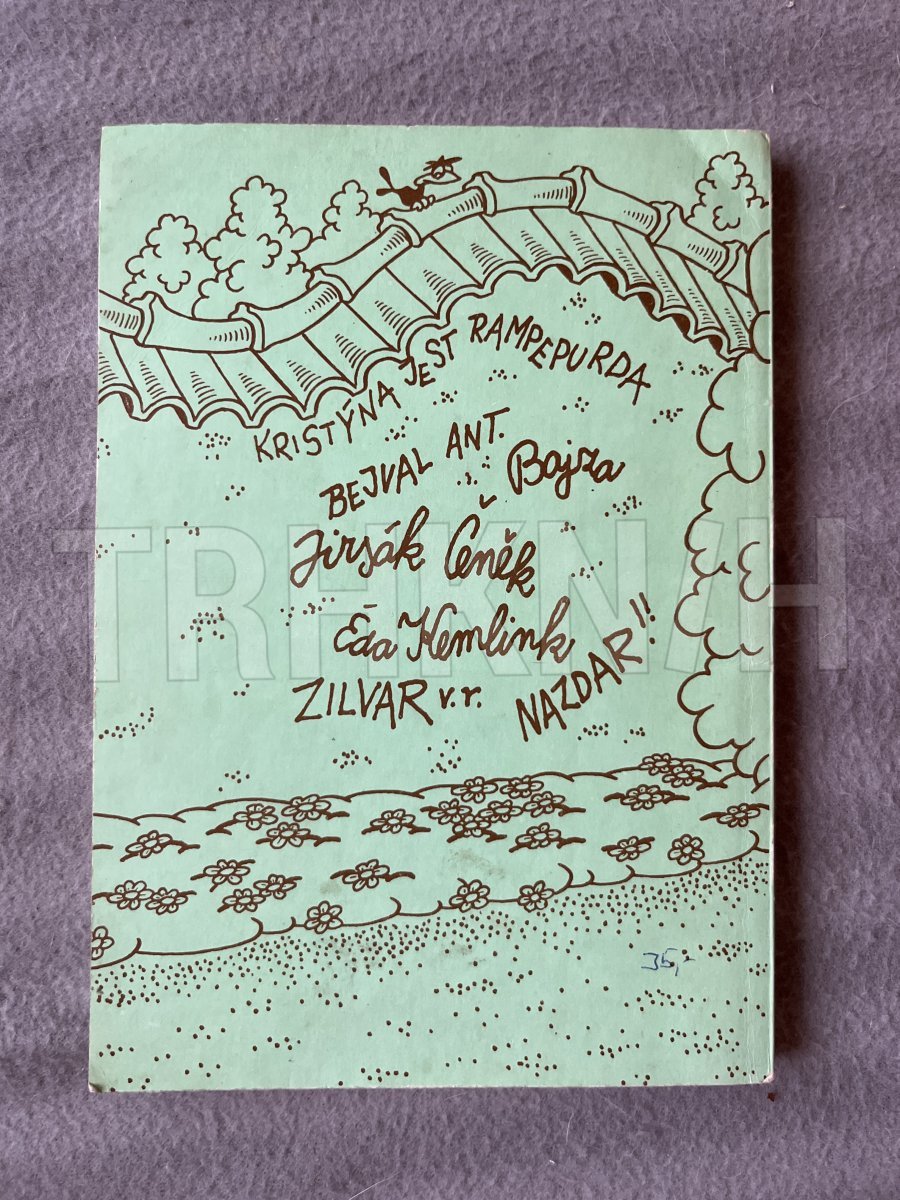 KRISTÝNA JEST RAMPEPURDA
BEJVAL ANT.
Bajza
Jirsák Čeněk
Éda Kemlink
ZILVAR v.r.
NAZDAR!!
35,-
TRHKNIH